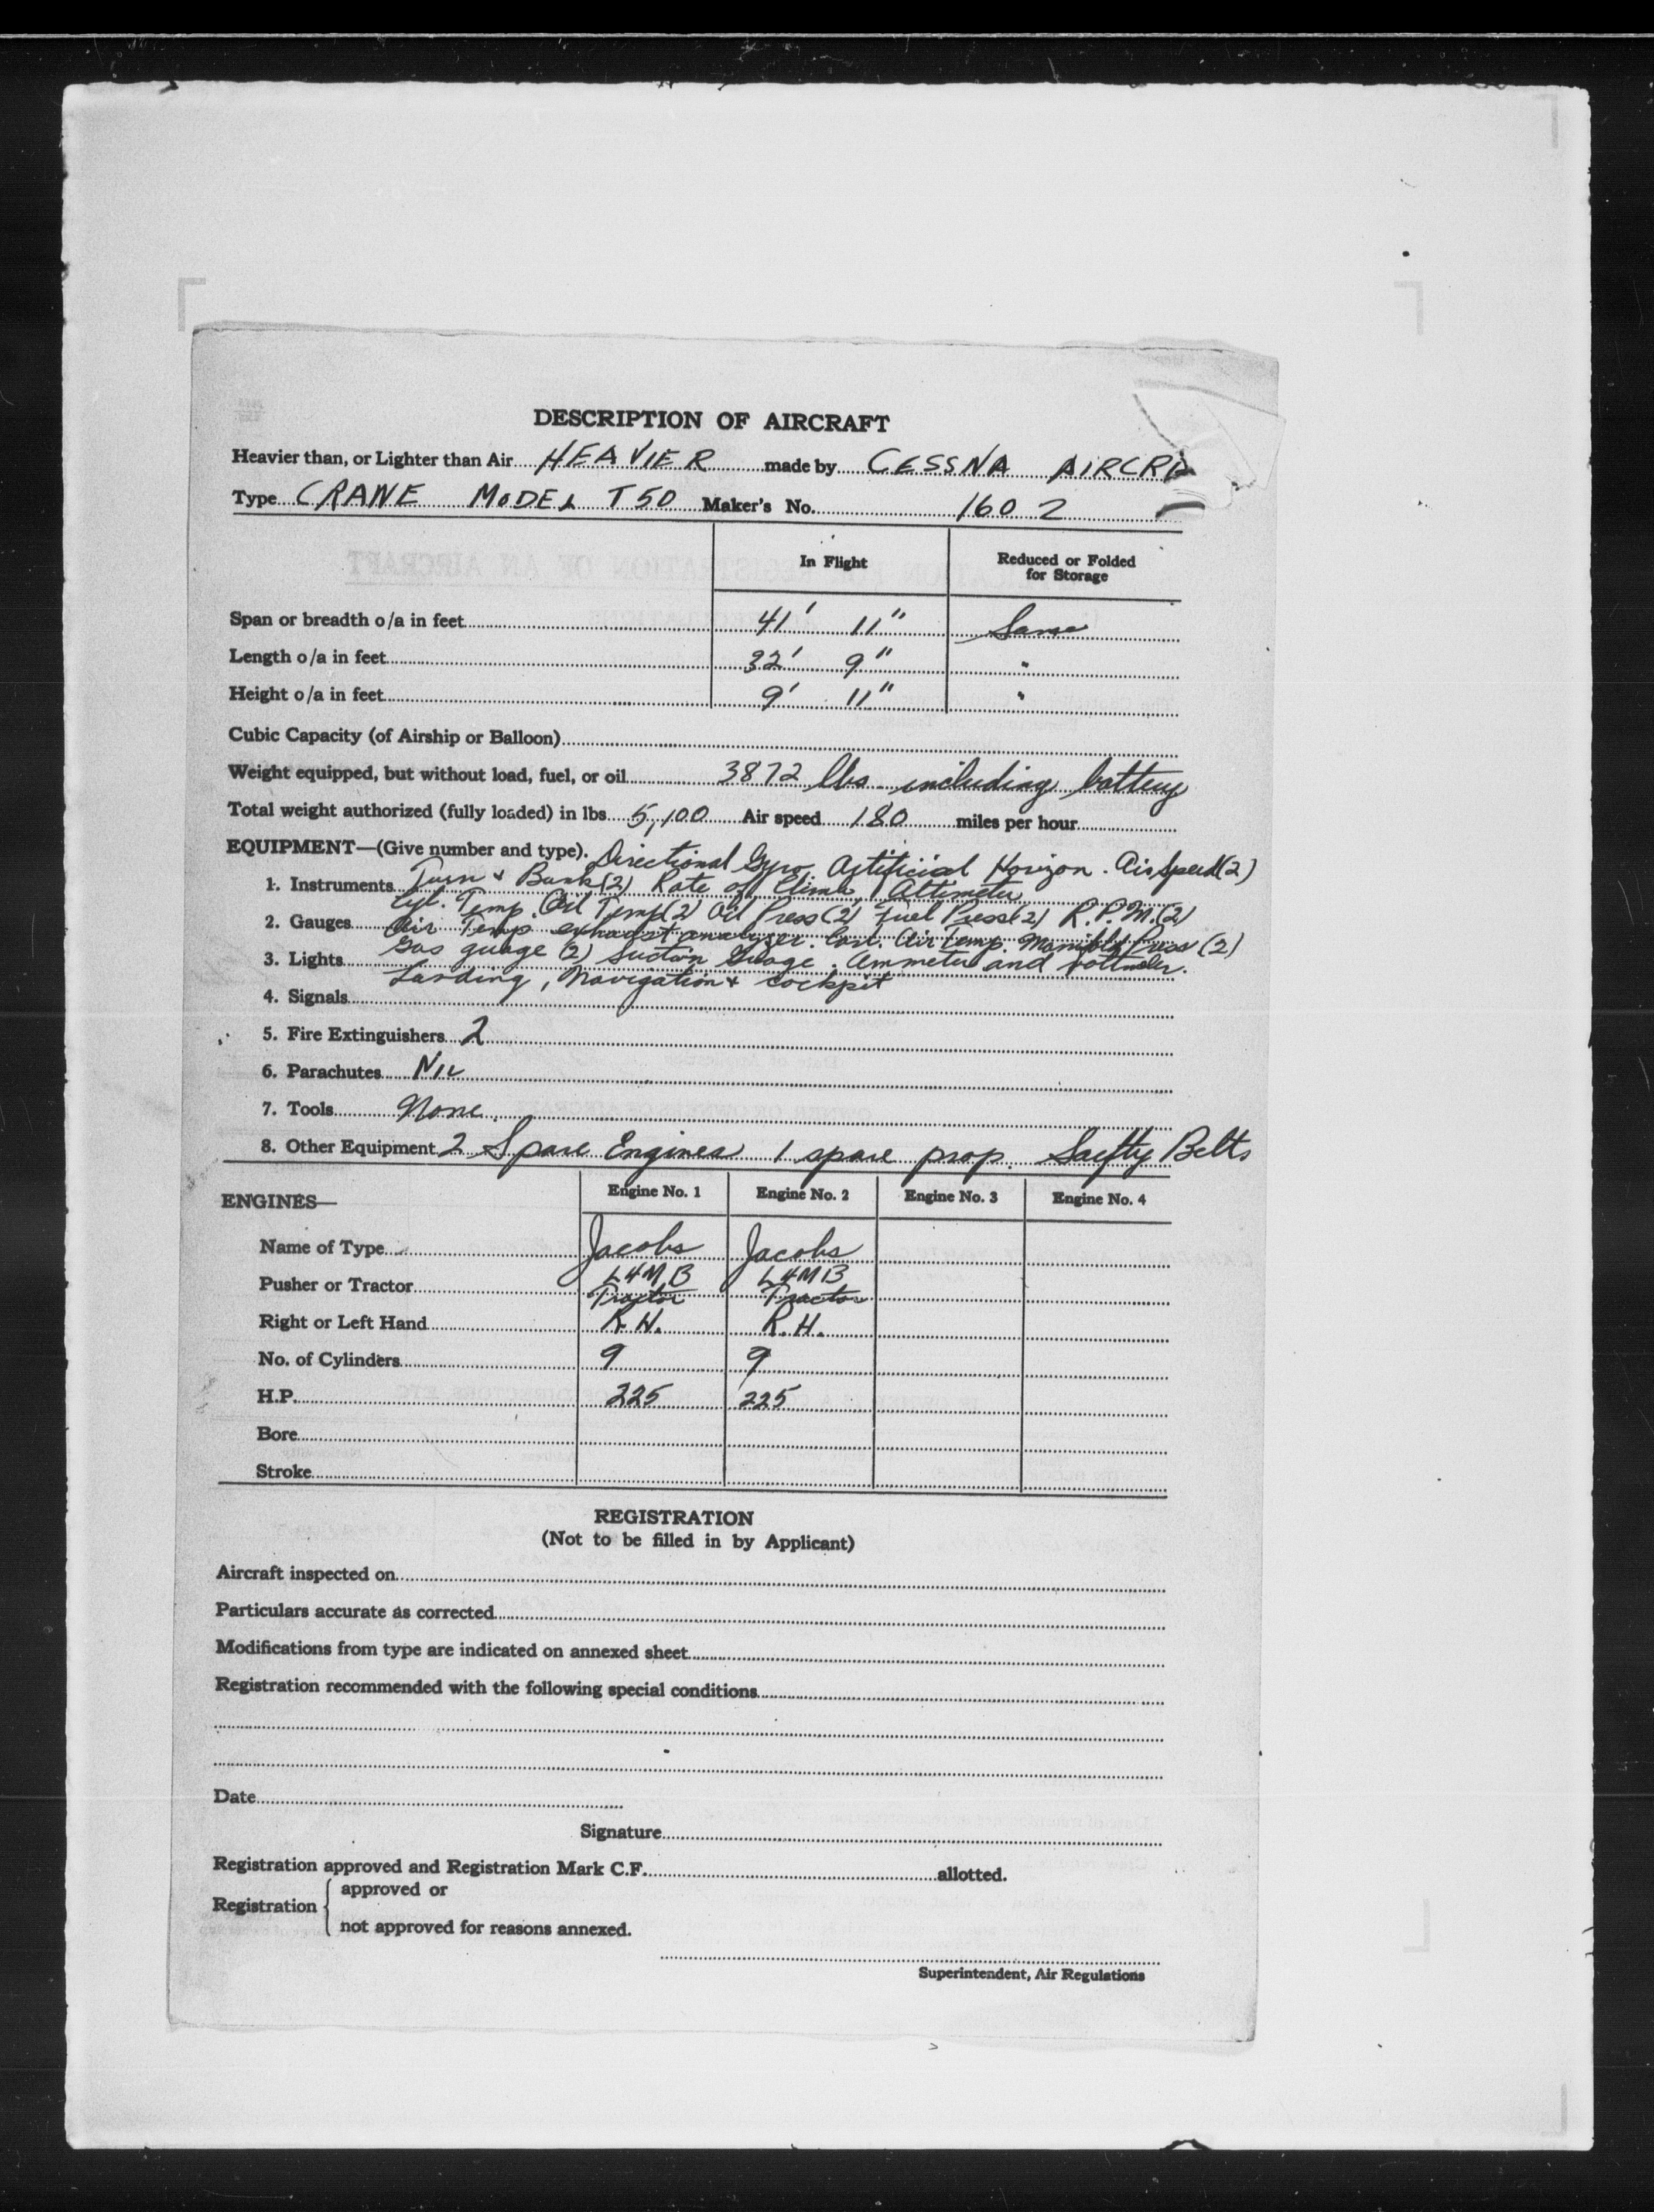 DESCRIPTION OF AIRCRAFT
Heavier than, or Lighter than Air HEAVIER made by CESSNA AIRCRA
Type CRANE MODEL T50 Maker's No. 1602
In Flight Reduced or Folded for Storage
Span or breadth o/a in feet 41' 11" Same
Length o/a in feet 32' 9" "
Height o/a in feet 9' 11" "
Cubic Capacity (of Airship or Balloon)
Weight equipped, but without load, fuel, or oil 3872 lbs including battery
Total weight authorized (fully loaded) in lbs 5,100 Air speed 180 miles per hour
EQUIPMENT—(Give number and type). Directional Gyro. Artificial Horizon. Air Speed (2)
1. Instruments Turn & Bank (2) Rate of Climb, Altimeter
Cyl. Temp. Oil Temp (2) Oil Press (2) Fuel Press (2) R.P.M. (2)
2. Gauges Air Temp exhaust analyzer. Air Temp. Press (2)
Gas guage (2) Suction Guage. Ammeter and
3. Lights
Landing, Navigation & cockpit
4. Signals
5. Fire Extinguishers 2
6. Parachutes NIL
7. Tools None
8. Other Equipment 2 Spare Engines 1 spare prop. Saefty Belts
ENGINES— Engine No. 1 Engine No. 2 Engine No. 3 Engine No. 4
Name of Type Jacobs Jacobs
L4MB L4MB
Pusher or Tractor Tractor Tractor
Right or Left Hand R.H. R.H.
No. of Cylinders 9 9
H.P. 225 225
Bore
Stroke
REGISTRATION
(Not to be filled in by Applicant)
Aircraft inspected on
Particulars accurate as corrected
Modifications from type are indicated on annexed sheet
Registration recommended with the following special conditions
Date
Signature
Registration approved and Registration Mark C.F. allotted.
approved or
Registration
not approved for reasons annexed.
Superintendent, Air Regulations